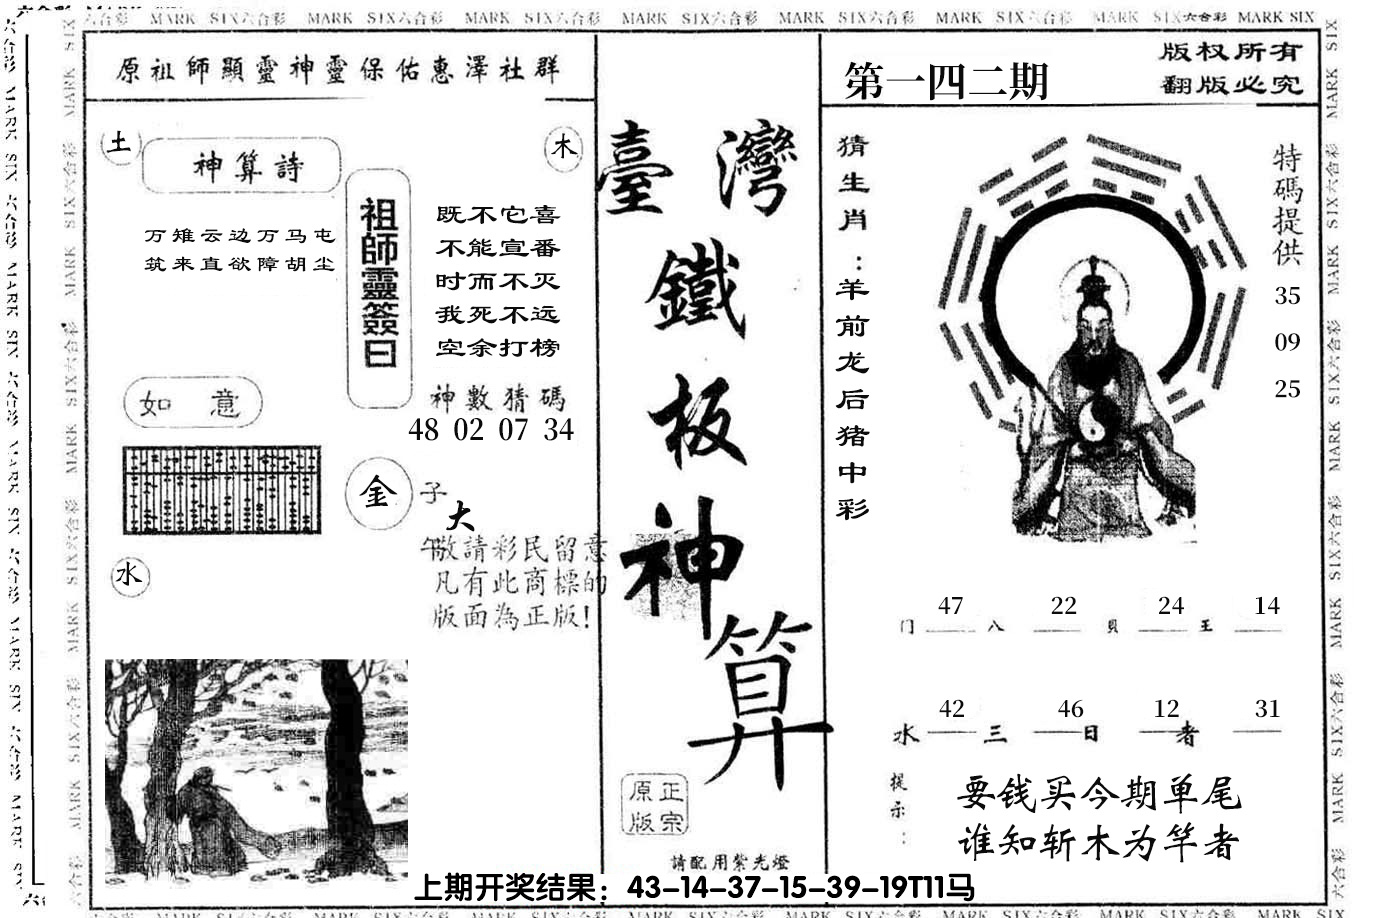 原祖師顯靈神靈保佑惠澤社群
土
神算詩
木
万雉云边万马屯
筑来直欲障胡尘
祖師靈簽曰
既不它喜
不能宣番
时而不灭
我死不远
空余打榜
如意
神數猜碼
48 02 07 34
金
子
大
午
敬請彩民留意
凡有此商標的
版面為正版!
水
臺灣
鐵
板
神
算
原正
版宗
請配用紫光燈
第一四二期
版权所有
翻版必究
猜生肖:羊前龙后猪中彩
特碼提供
35
09
25
47 22 24 14
门 八 貝 王
42 46 12 31
水 三 日 者
提示:
要钱买今期单尾
谁知斩木为竿者
上期开奖结果：43-14-37-15-39-19T11马
MARK SIX六合彩